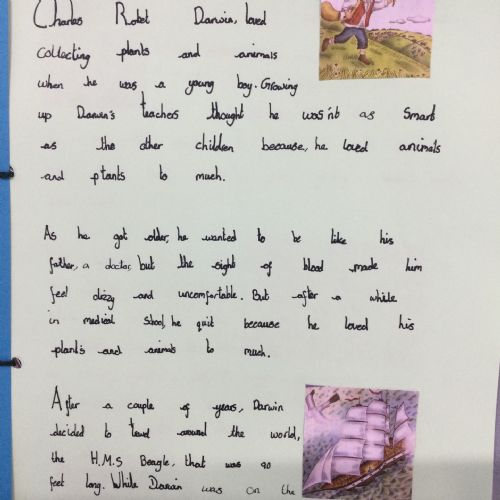 Charles Robet Darwin, loved
collecting plants and animals
when he was a young boy. Growing
up Darwin's teachers thought he was'nt as smart
as the other children because, he loved animals
and plants to much.
As he got older, he wanted to be like his
father, a doctor, but the sight of blood made him
feel dizzy and uncomfortable. But after a while
in medical shool, he quit because he loved his
plants and animals to much.
After a couple of years, Darwin
decided to around the world,
the H.M.S Beagle, that was 90
feet long. While Darwin was on the